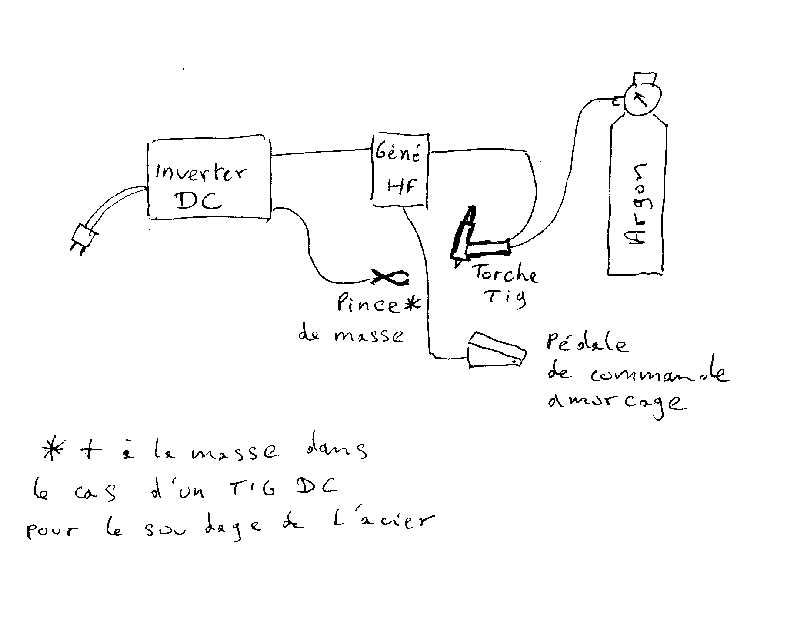 Inverter
DC
Géné
HF
Argon
Torche
Tig
Pince*
de masse
Pédale
de commande
amorcage
* + à la masse dans
le cas d'un TIG DC
pour le soudage de l'acier